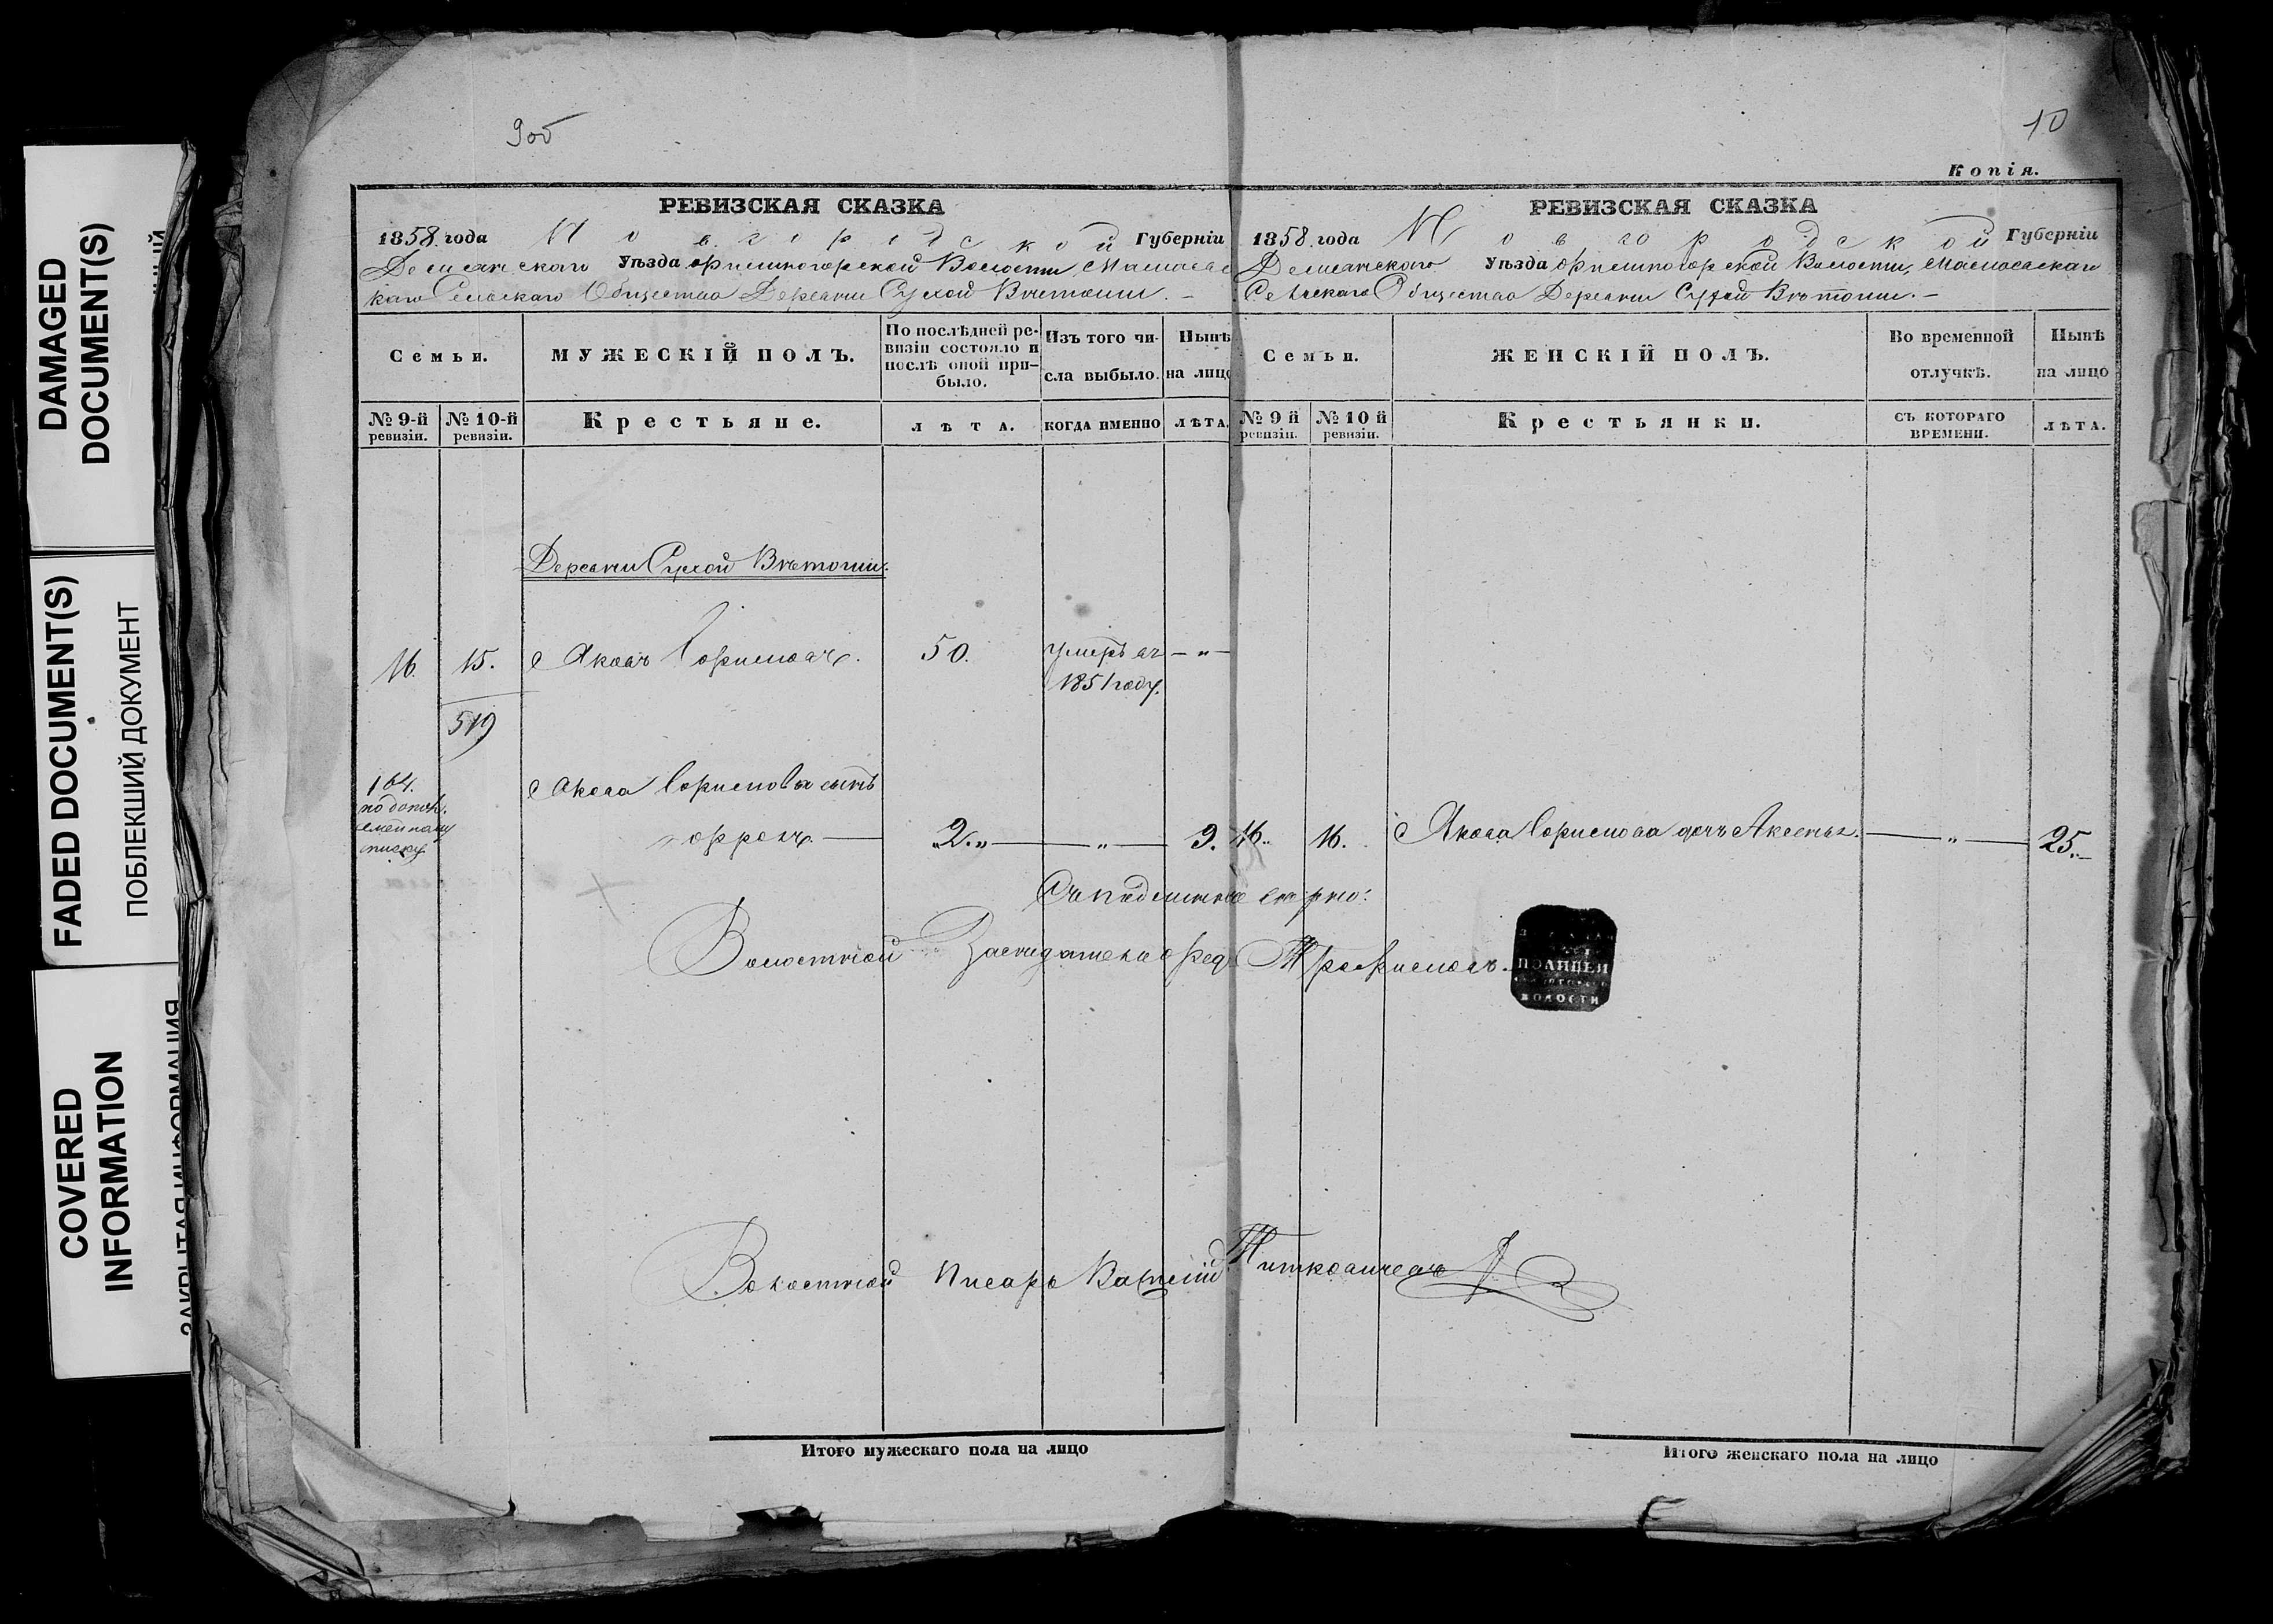 DAMAGED
DOCUMENT(S)
FADED DOCUMENT(S)
ПОБЛЕКШИЙ ДОКУМЕНТ
COVERED
INFORMATION
ЗАКРЫТАЯ ИНФОРМАЦИЯ
9об
РЕВИЗСКАЯ СКАЗКА
1858 года Новгородской Губерніи
Демянскаго Уѣзда Волости
Сельскаго Общества Деревни Сухой Вѣтоши.
Семьи.
МУЖЕСКІЙ ПОЛЪ.
По послѣдней ре-
визіи состояло и
послѣ оной при-
было.
Изъ того чи-
сла выбыло.
Нынѣ
на лицо
№ 9-й
ревизіи.
№ 10-й
ревизіи.
Крестьяне.
ЛѢТА.
КОГДА ИМЕННО
ЛѢТА.
Деревни Сухой Вѣтоши.
16. 15. Яковъ 50. умеръ въ — " —
1851 году.
519
164.
по
списку
Якова сынъ
2. " — " — 9.
10
Копія.
РЕВИЗСКАЯ СКАЗКА
1858 года Новгородской Губерніи
Демянскаго Уѣзда Волости,
Сельскаго Общества Деревни Сухой Вѣтоши. —
Семьи.
ЖЕНСКІЙ ПОЛЪ.
Во временной
отлучкѣ.
Нынѣ
на лицо
№ 9 й
ревизіи.
№ 10 й
ревизіи.
Крестьянки.
СЪ КОТОРАГО
ВРЕМЕНИ.
ЛѢТА.
16. 16. Якова дочь — " — 25.
Съ подлиннымъ вѣрно:
Волостной Засѣдатель Трофимовъ.
ПОЛИЦЕИ
ВОЛОСТИ
Волостной Писарь
Итого мужескаго пола на лицо
Итого женскаго пола на лицо